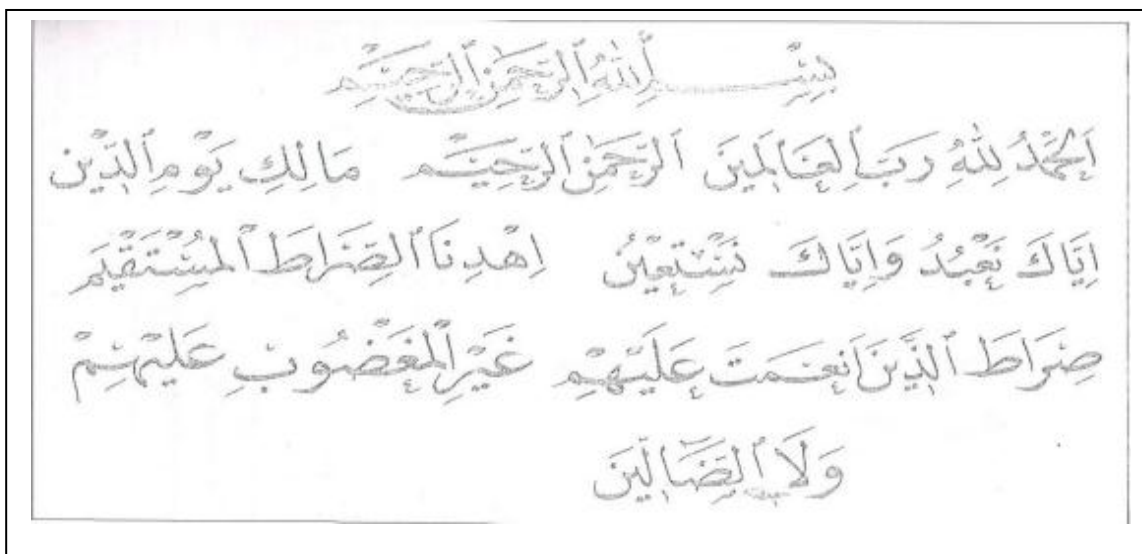 بِسْمِ اللهِ الرَّحْمٰنِ الرَّحِيْمِ
اَلْحَمْدُ لِلّٰهِ رَبِّ الْعَالَمِيْنَ اَلرَّحْمٰنِ الرَّحِيْمِ مَالِكِ يَوْمِ الدِّيْنِ
اِيَّاكَ نَعْبُدُ وَاِيَّاكَ نَسْتَعِيْنُ اِهْدِنَا الصِّرَاطَ الْمُسْتَقِيْمَ
صِرَاطَ الَّذِيْنَ اَنْعَمْتَ عَلَيْهِمْ غَيْرِ الْمَغْضُوْبِ عَلَيْهِمْ
وَلَا الضَّالِّيْنَ